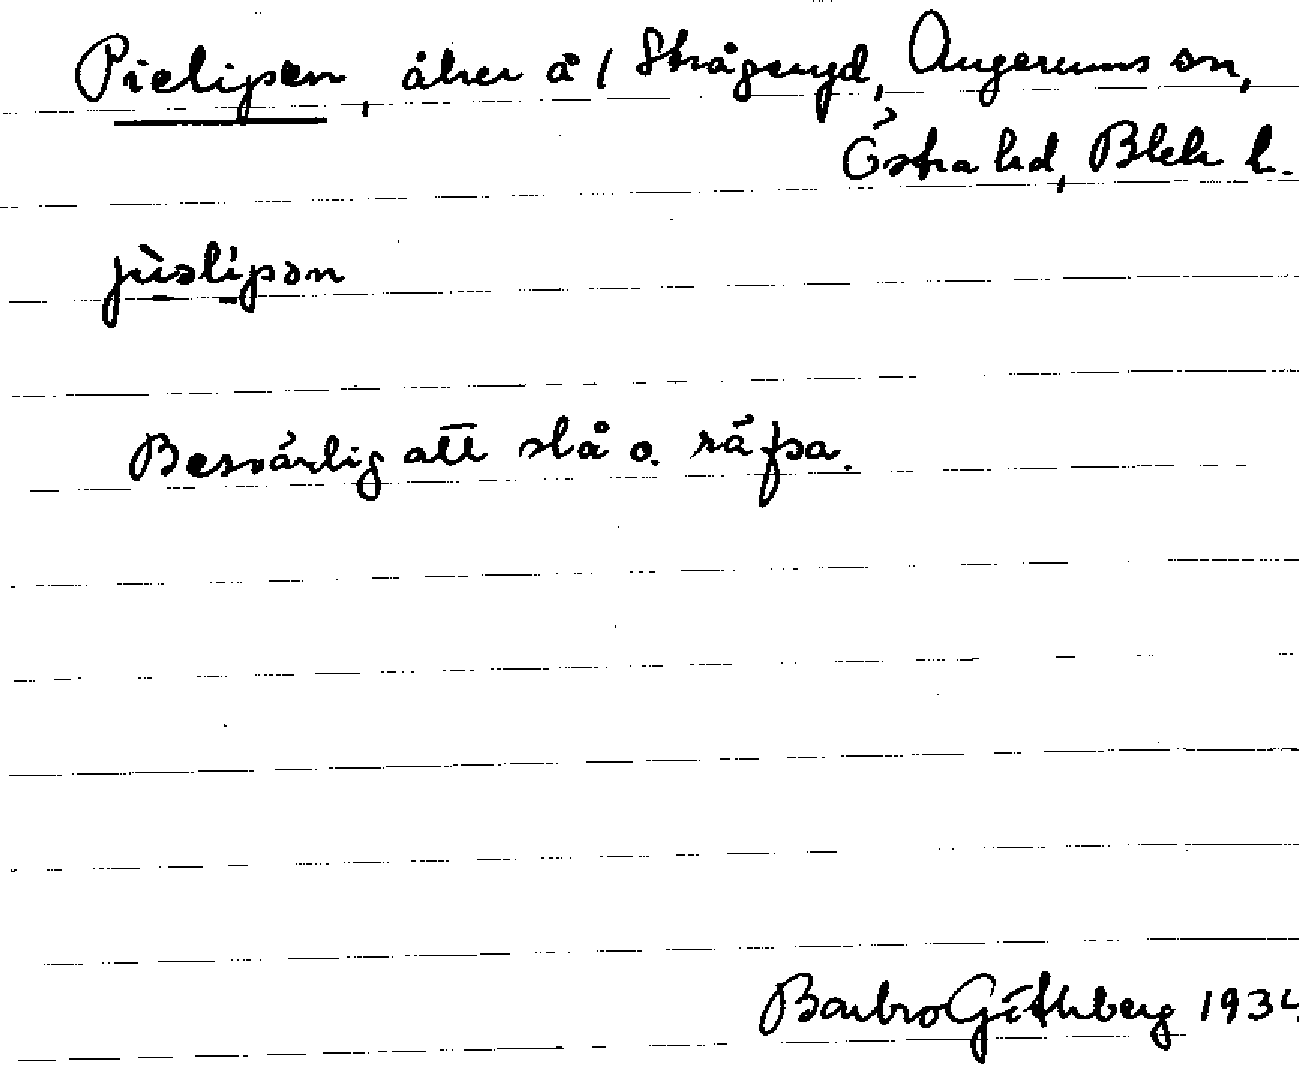 Pielipen, åker å 1 Strågeryd, Augerums sn,
Östra hd, Blek l.
pìəlípən
Besvärlig att slå o. räfsa.
Barbro Göthberg 1934